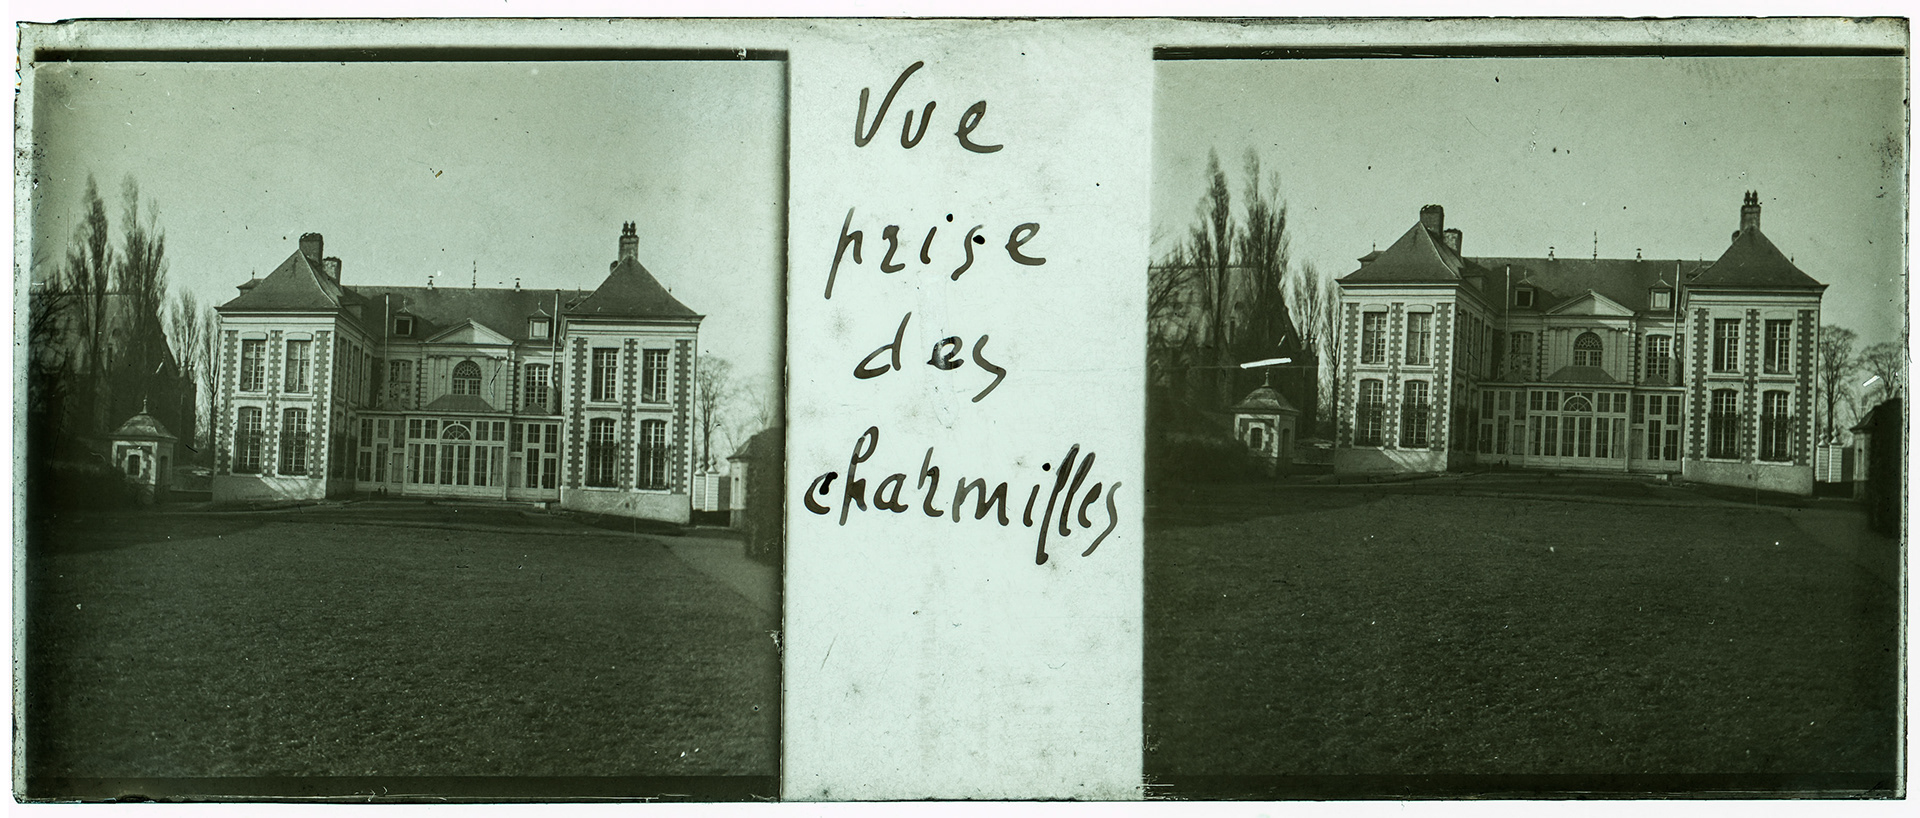 Vue
prise
des
charmilles